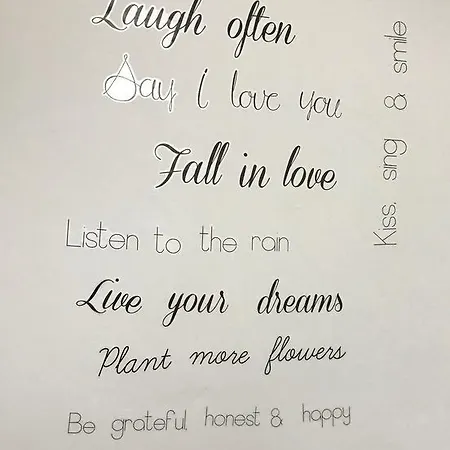 Laugh often
Say i love you
Fall in love
Listen to the rain
Live your dreams
Plant more flowers
Be grateful, honest & happy
Kiss, sing & smile